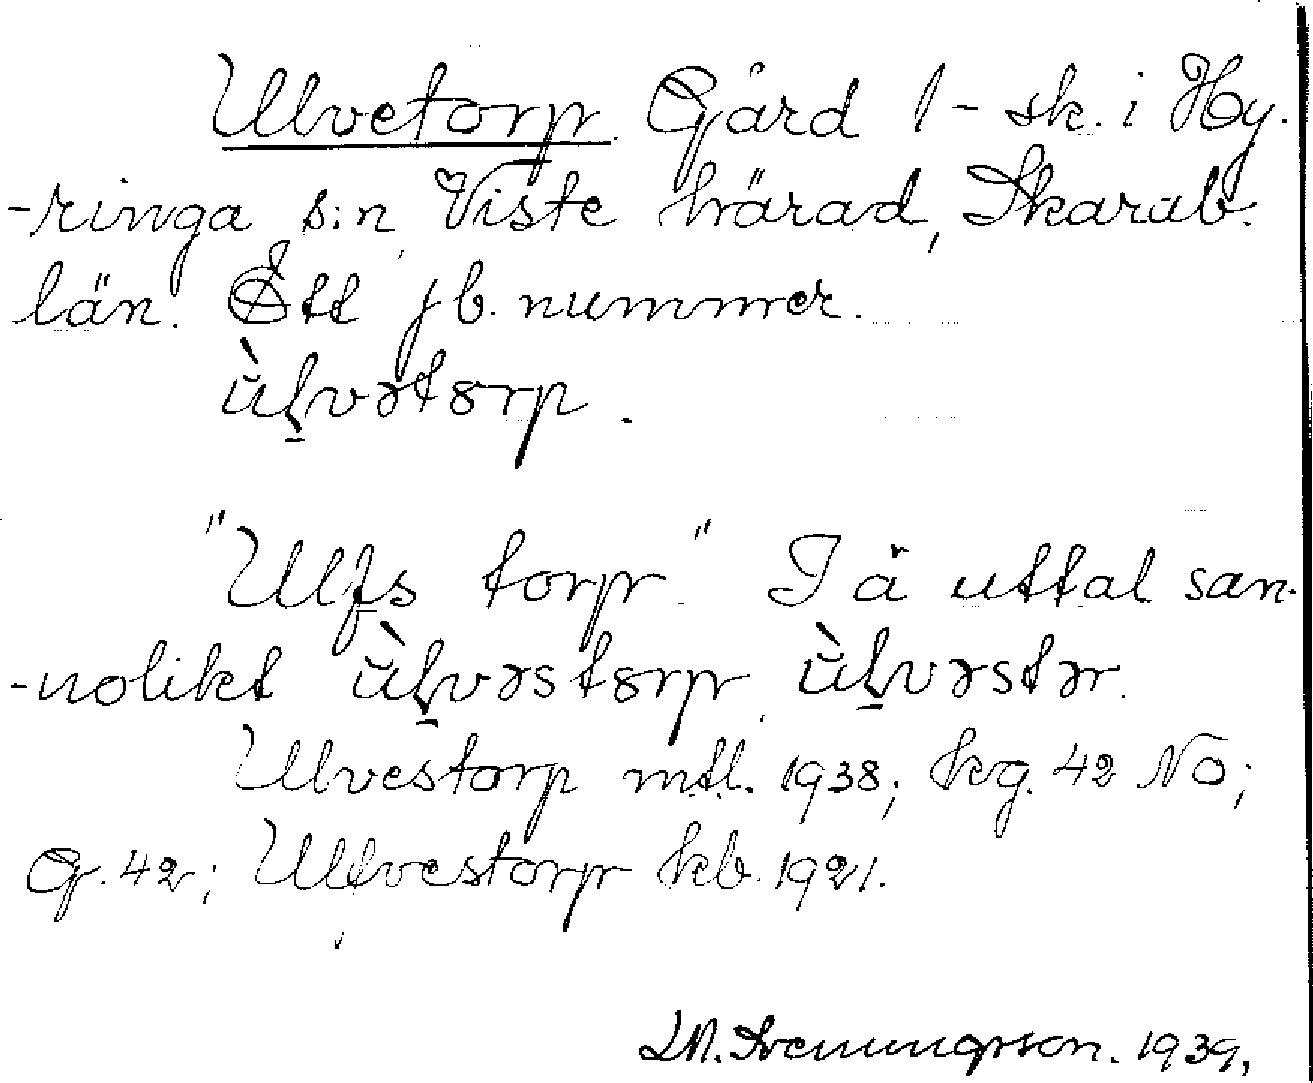 Ulvetorp. Gård 1 - sk. i Hy-
-ringa s:n, Viste härad, Skarab.
län. Ett jb. nummer.
ùḷvətɷrp.
"Ulfs torp." I ä uttal san-
-nolikt ùḷvəstɷrp, ùḷvəstər.
Ulvestorp mtl. 1938; kg. 42 NO;
G. 42; Ulfvestorp kb. 1921.
Svenungsson. 1939,